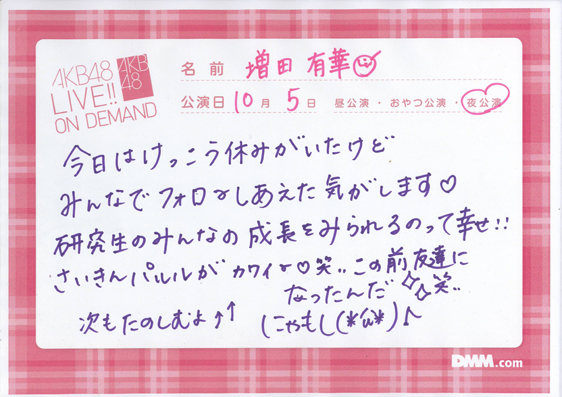 AKB48
LIVE!!
ON DEMAND
AKB
48
名前 増田 有華
公演日 10月 5日 昼公演・おやつ公演・夜公演
今日はけっこう休みがいたけど
みんなでフォローしあえた気がします♡
研究生のみんなの成長をみられるのって幸せ!!
さいきんパルルがカワイー♡笑‥この前友達に
なったんだ 笑‥
次もたのしむよ↑↑
DMM.com